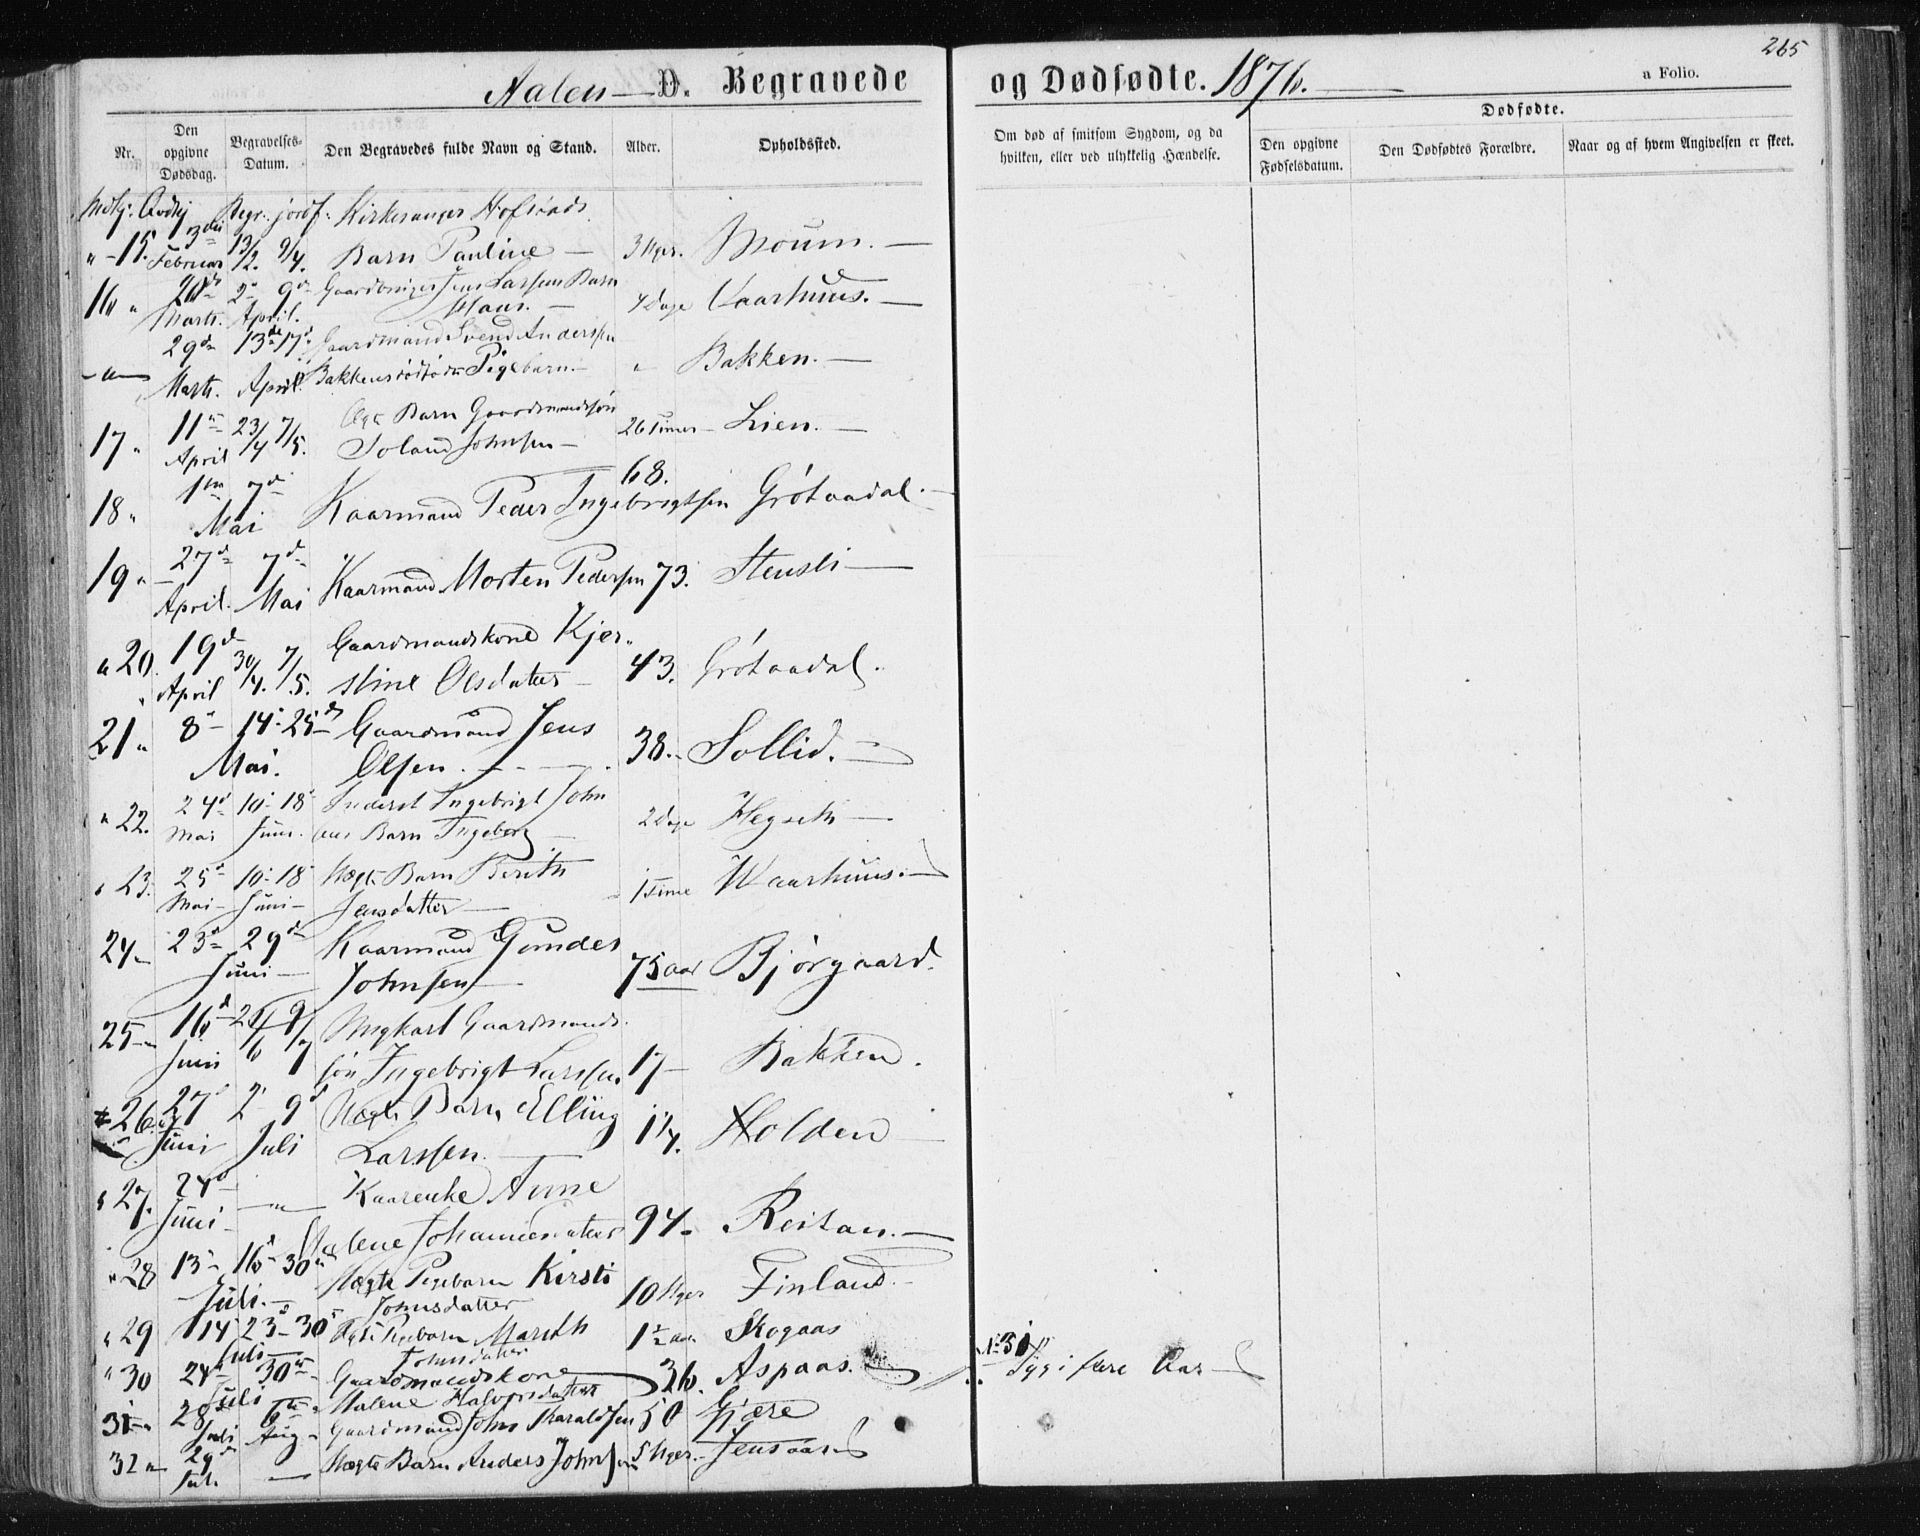 265
Aalen D. Begravede og Dødfødte. 1876. a Folio.
Nr. Den opgivne Dødsdag. Begravelses-Datum. Den Begravedes fulde Navn og Stand. Alder. Opholdssted. Om død af smitsom Sygdom, og da hvilken, eller ved ulykkelig Hændelse. Dødfødte. Den opgivne Fødselsdatum. Den Dødfødtes Forældre. Naar og af hvem Angivelsen er skeet.
Begr. jordf. Kirkesanger
15. 3die Februar 13/2. 9/4. Barn Pauline 3 Uger. Moum.
16 Marts. 2 9 April. Jens Larsens Barn
4 Dage Vaarhuus.
29 Marts. 13 17 April. Gaardmand Svend Anderssen
Bakkens Pigebarn. Bakken.
17 11 April 23/4 7/5. Barn
Johnsen 26 Timer Lien.
18 1ste 7de Mai Kaarmand Peder Ingebrigtsen 68. Grøtaadal.
19 27de April. 7de Mai Kaarmand Morten Pedersen 73. Stensli
20. 19de April 30/4. 7/5. Gaardmandskone Kjer-
stine Olsdatter 43. Grøtaadal.
21 8 14 25 Mai. Gaardmand Jens
Olsen. 38. Sollid.
22. 24 Mai 10 18 Juni. Inderst Ingebrigt John
Barn Ingeborg 2 Dage Hegseth
23. 25 Mai 10 18 Juni Uægte Barn Berith
Jensdatter 1 Time Waarhuus.
24 23 29 Juni Kaarmand Gunder
Johnsen 75 aar Bjørgaard.
25 16 Juni 9/7 Ungkarl Gaardmands-
søn Ingebrigt Larssen 17 Bakken.
26. 27 Juni 2 9 Juli Uægte Barn Elling
Larssen. 1 1/4. Holden
27. 24 Juni Kaarenke Anne
Malene Johannesdatter 94 Reitan.
28 13 16 30 Juli. Uægte Pigebarn Kirsti
Johnsdatter 10 Uger Finland.
29 14 23 30 Juli Pigebarn Marith
Johnsdatter 1 1/2 aar Skogaas
30 24 Juli 30 Gaardmandskone
Malene Halvorsdatter 36. Aspaas.
31 28 Juli 6 Aug Gaardmand John Haraldsen 50 Gjære
No 31 Syg i flere Aar
32 29 Juli Uægte Barn Anders Johnsen 5 Uger. Jensaas